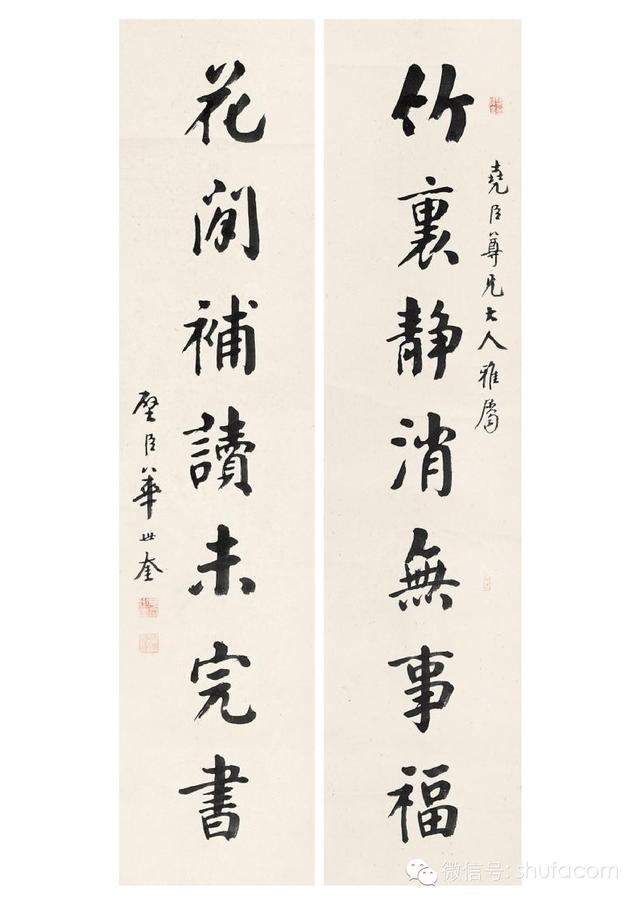 堯臣尊兄大人雅屬
竹裏静消無事福
花間補讀未完書
壁臣華世奎
微信号: shufacom